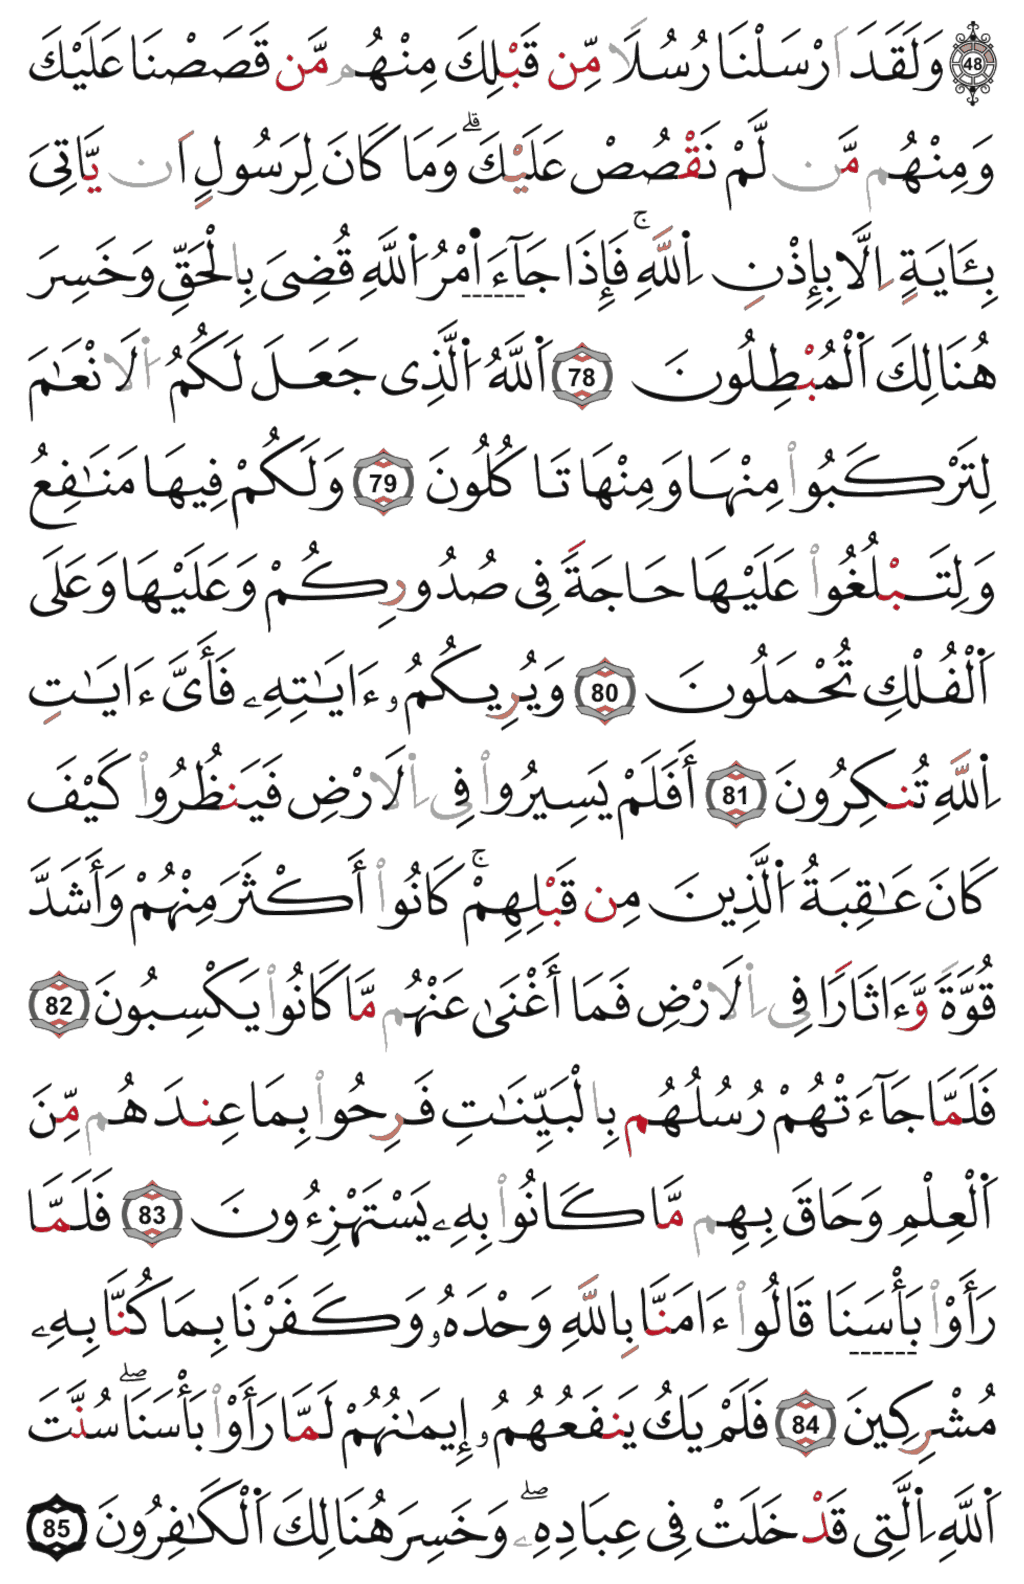 48 وَلَقَدَ ارْسَلْنَا رُسُلًا مِّن قَبْلِكَ مِنْهُم مَّن قَصَصْنَا عَلَيْكَ
وَمِنْهُم مَّن لَّمْ نَقْصُصْ عَلَيْكَۗ وَمَا كَانَ لِرَسُولٍ اَن يَّاتِىَ
بِـَٔايَةٍ اِلَّا بِإِذْنِ اِ۬للَّهِۚ فَإِذَا جَآءَ ا۬مْرُ اُ۬للَّهِ قُضِىَ بِالْحَقِّ وَخَسِرَ
هُنَالِكَ اَ۬لْمُبْطِلُونَ 78 اَ۬للَّهُ اُ۬لَّذِى جَعَلَ لَكُمُ اُ۬لَانْعَٰمَ
لِتَرْكَبُواْ مِنْهَا وَمِنْهَا تَاكُلُونَ 79 وَلَكُمْ فِيهَا مَنَٰفِعُ
وَلِتَبْلُغُواْ عَلَيْهَا حَاجَةً فِى صُدُورِكُمْ وَعَلَيْهَا وَعَلَى
اَ۬لْفُلْكِ تُحْمَلُونَ 80 وَيُرِيكُمُۥ ءَايَٰتِهِۦ فَأَىَّ ءَايَٰتِ
اِ۬للَّهِ تُنكِرُونَ 81 أَفَلَمْ يَسِيرُواْ فِى اِ۬لَارْضِ فَيَنظُرُواْ كَيْفَ
كَانَ عَٰقِبَةُ اُ۬لَّذِينَ مِن قَبْلِهِمْۚ كَانُواْ أَكْثَرَ مِنْهُمْ وَأَشَدَّ
قُوَّةً وَّءَاثَارًا فِى اِ۬لَارْضِ فَمَا أَغْنَىٰ عَنْهُم مَّا كَانُواْ يَكْسِبُونَ 82
فَلَمَّا جَآءَتْهُمْ رُسُلُهُم بِالْبَيِّنَٰتِ فَرِحُواْ بِمَا عِندَهُم مِّنَ
اَ۬لْعِلْمِ وَحَاقَ بِهِم مَّا كَانُواْ بِهِۦ يَسْتَهْزِءُونَ 83 فَلَمَّا
رَأَوْاْ بَأْسَنَا قَالُواْ ءَامَنَّا بِاللَّهِ وَحْدَهُۥ وَكَفَرْنَا بِمَا كُنَّا بِهِۦ
مُشْرِكِينَ 84 فَلَمْ يَكُ يَنفَعُهُمُۥ إِيمَٰنُهُمْ لَمَّا رَأَوْاْ بَأْسَنَاۖ سُنَّتَ
اَ۬للَّهِ اِ۬لَّتِى قَدْ خَلَتْ فِى عِبَادِهِۦۖ وَخَسِرَ هُنَالِكَ اَ۬لْكَٰفِرُونَ 85